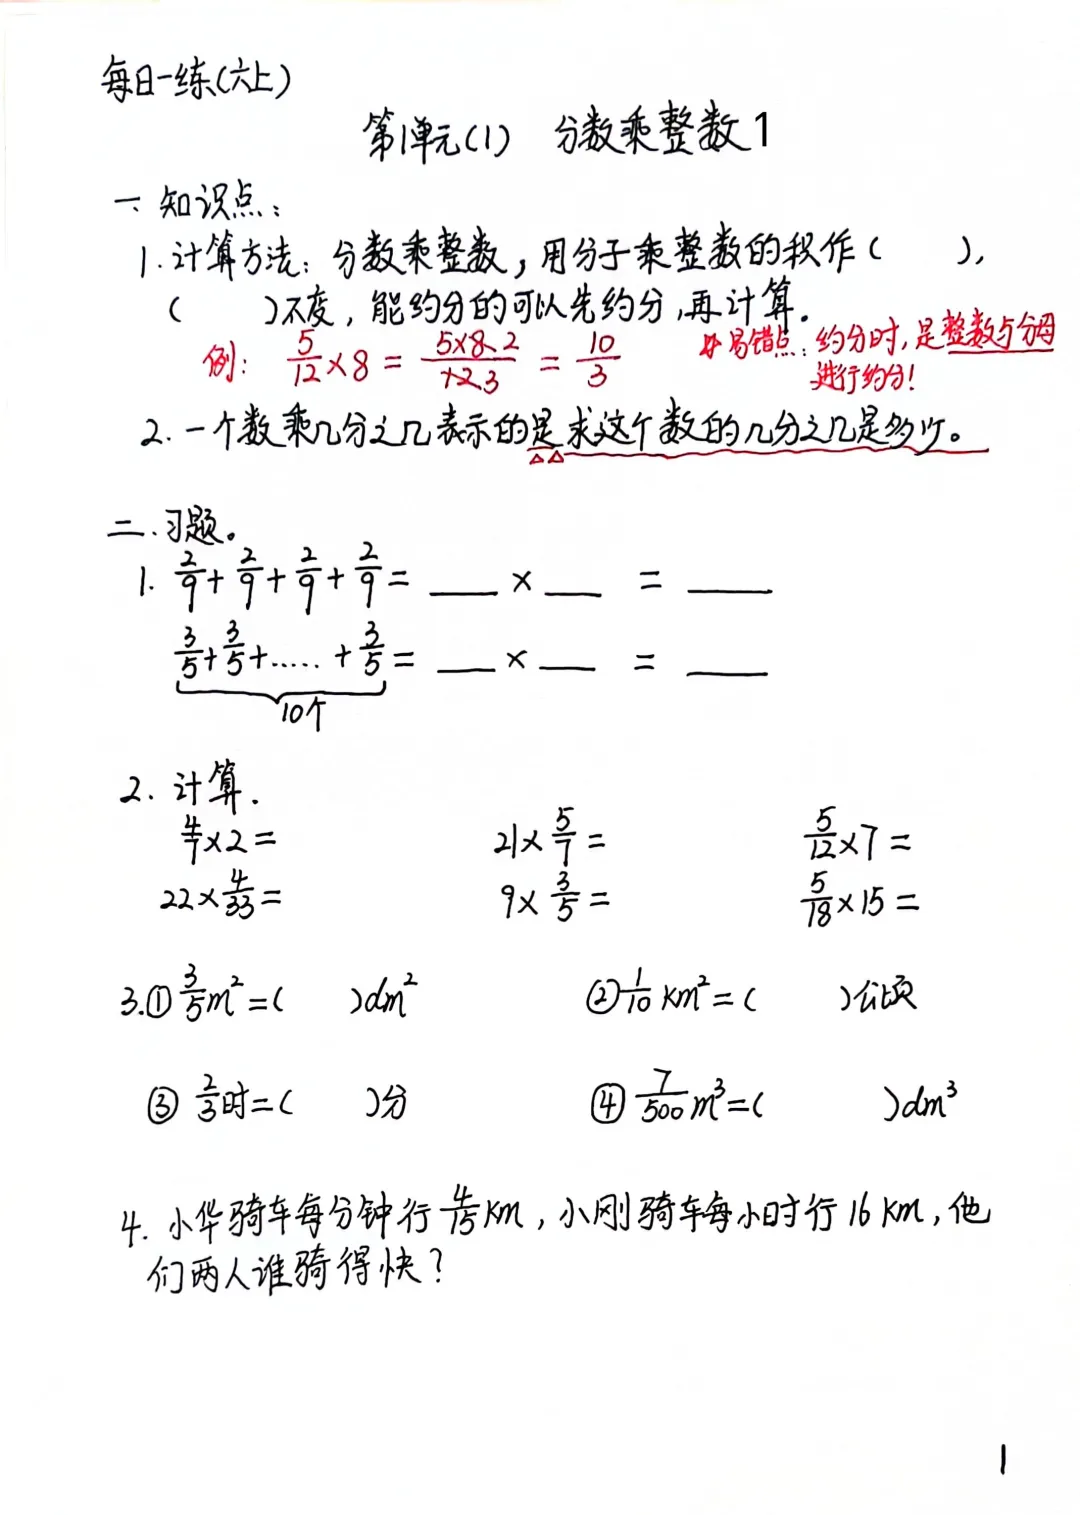 每日一练(六上)
第1单元(1) 分数乘整数1
一、知识点:
1.计算方法:分数乘整数,用分子乘整数的积作( ),
( )不变,能约分的可以先约分,再计算.
例: 5/12×8 = 5×8 2/12 3 = 10/3
易错点:约分时,是整数与分母
进行约分!
2.一个数乘几分之几表示的是求这个数的几分之几是多少。
二.习题。
1. 2/9+2/9+2/9+2/9= ___ × ___ = ___
3/5+3/5+.....+3/5= ___ × ___ = ___
10个
2.计算.
4/7×2= 21×5/7= 5/12×7=
22×4/33= 9×3/5= 5/18×15=
3.①3/5m²=( )dm² ②1/10km²=( )公顷
③2/3时=( )分 ④7/500m³=( )dm³
4.小华骑车每分钟行4/15km,小刚骑车每小时行16km,他
们两人谁骑得快?
1